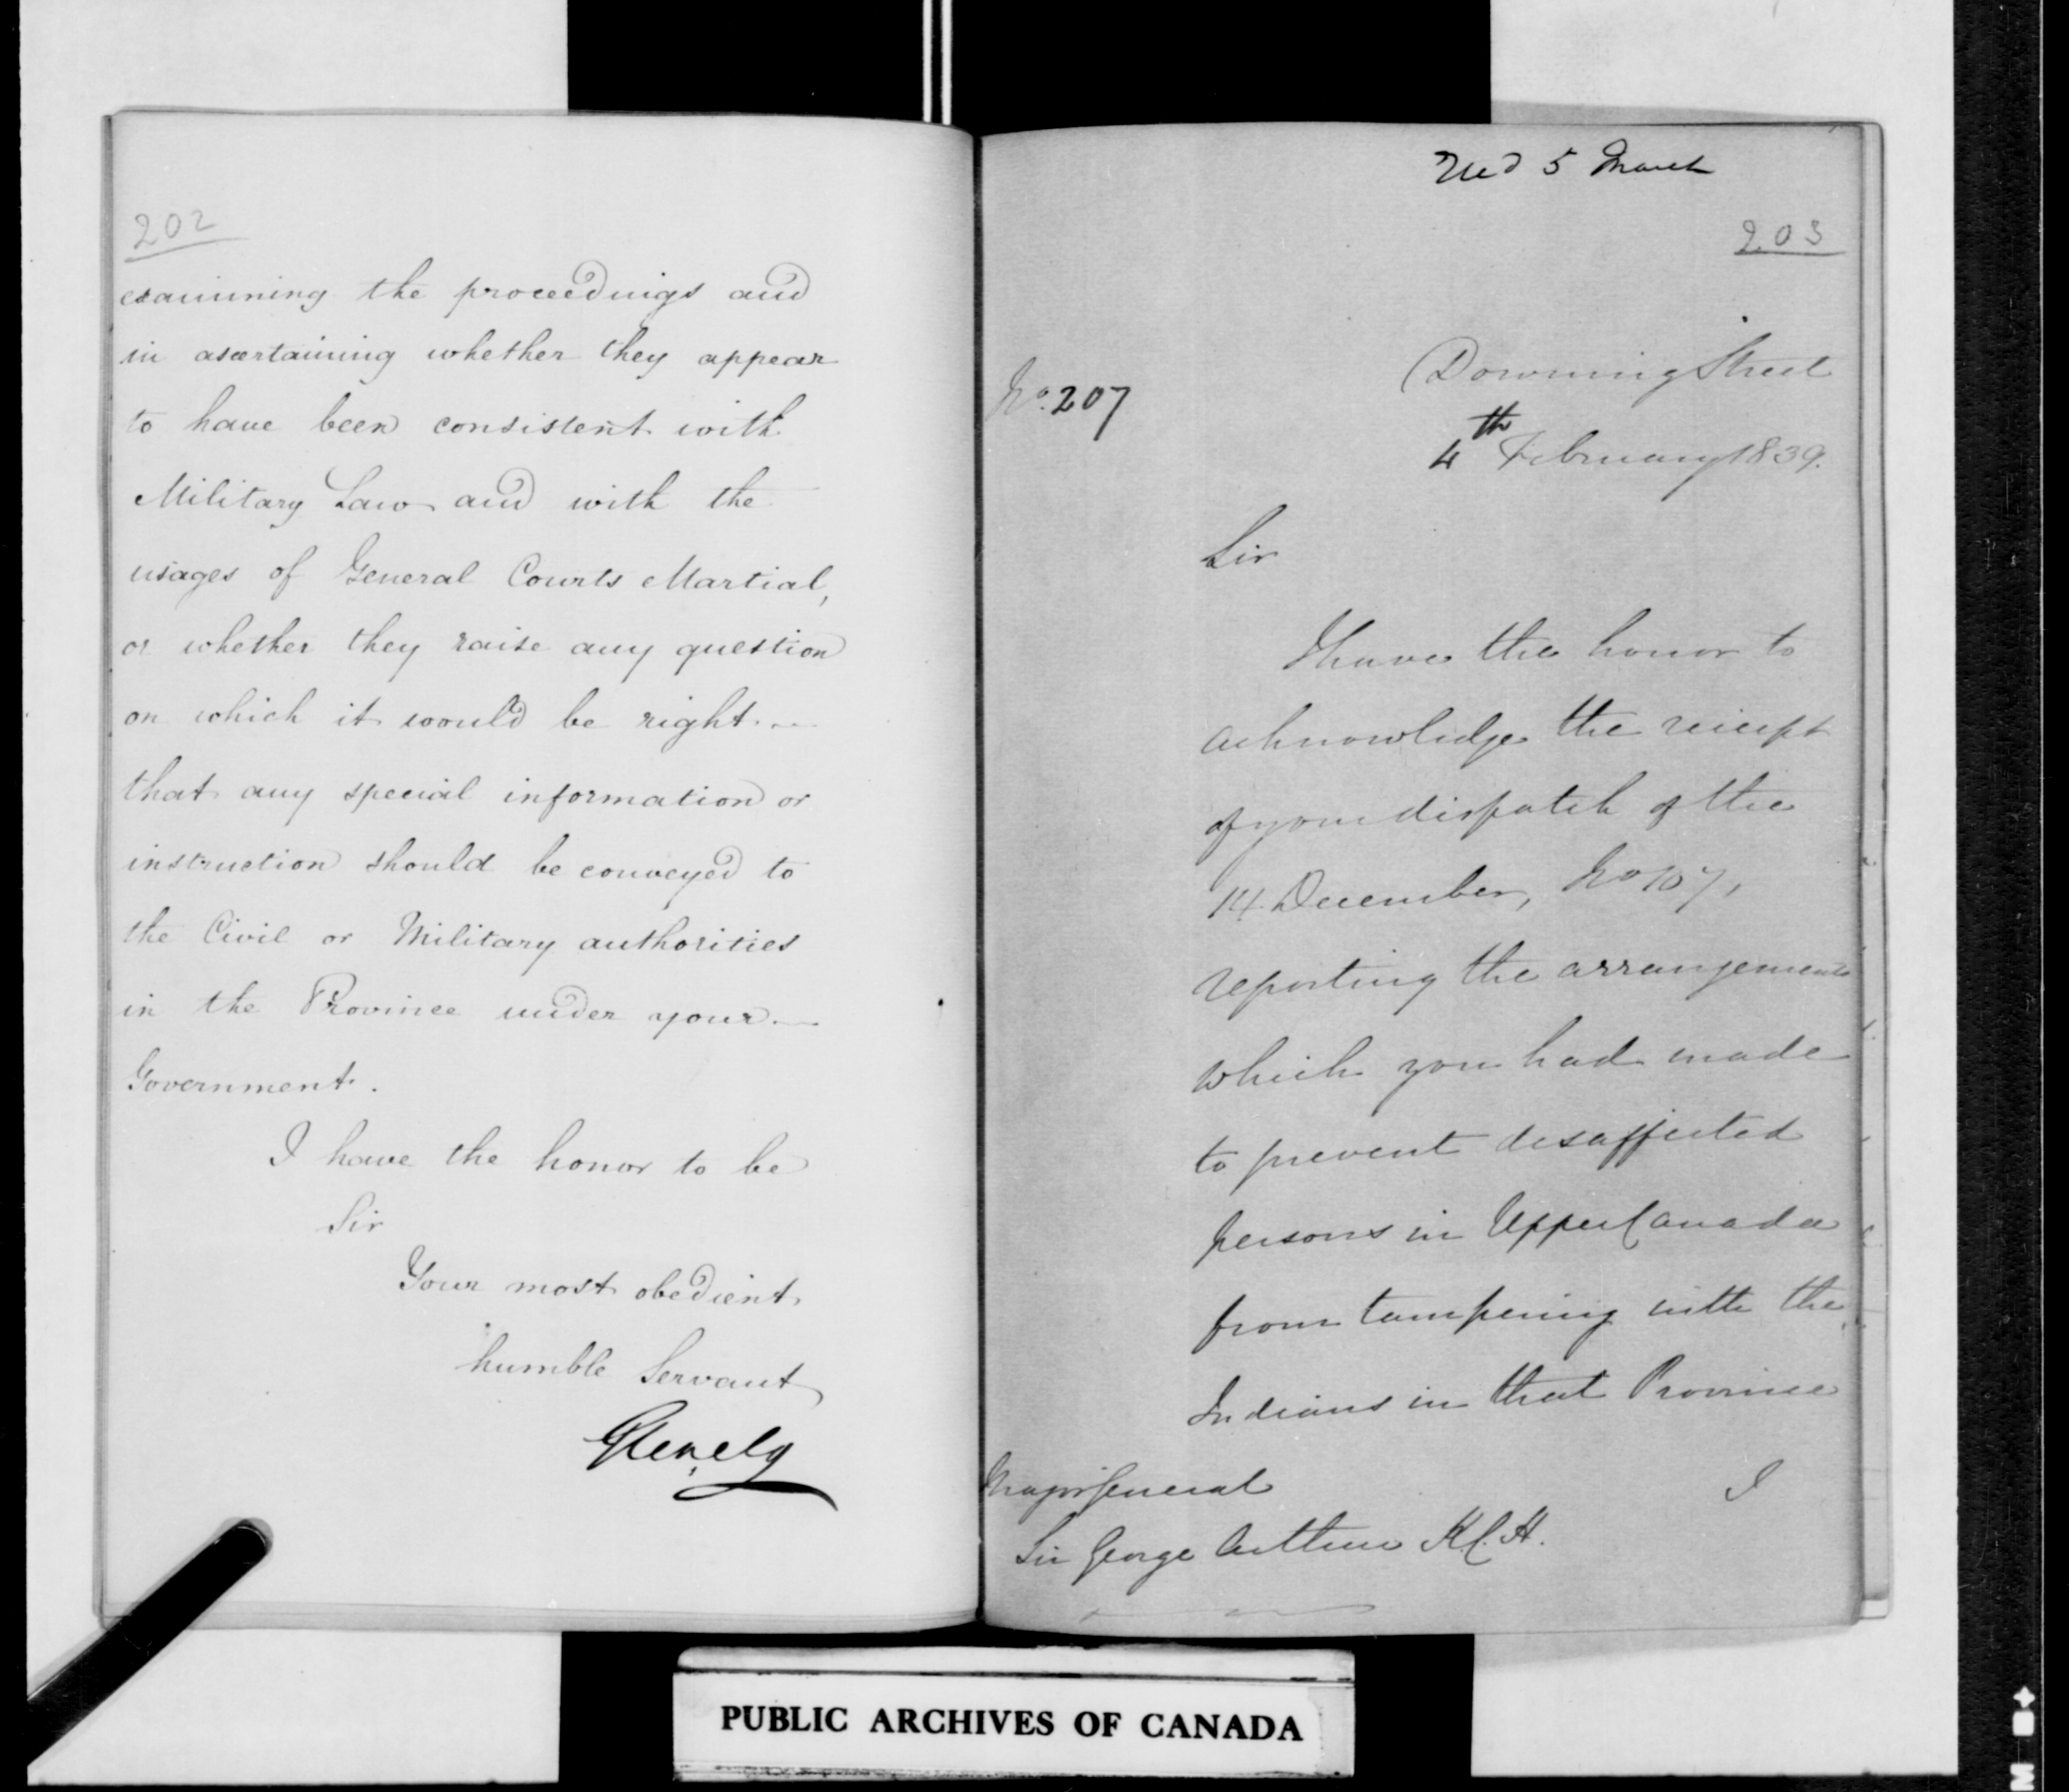 202
examining the proceedings and
in ascertaining whether they appear
to have been consistent with
Military Law and with the
usages of General Courts Martial,
or whether they raise any question
on which it would be right
that any special information or
instruction should be conveyed to
the Civil or Military authorities
in the Province under your
Government.
I have the honor to be
Sir
Your most obedient
humble Servant
Glenelg
5 March
203
No. 207
Downing Street
4th February 1839.
Sir
I have the honor to
acknowledge the receipt
of your dispatch of the
14 December, No 107,
reporting the arrangements
which you had made
to prevent disaffected
persons in Upper Canada
from tampering with the
Indians in that Province
I
Major General
Sir George Arthur K.C.H.
PUBLIC ARCHIVES OF CANADA